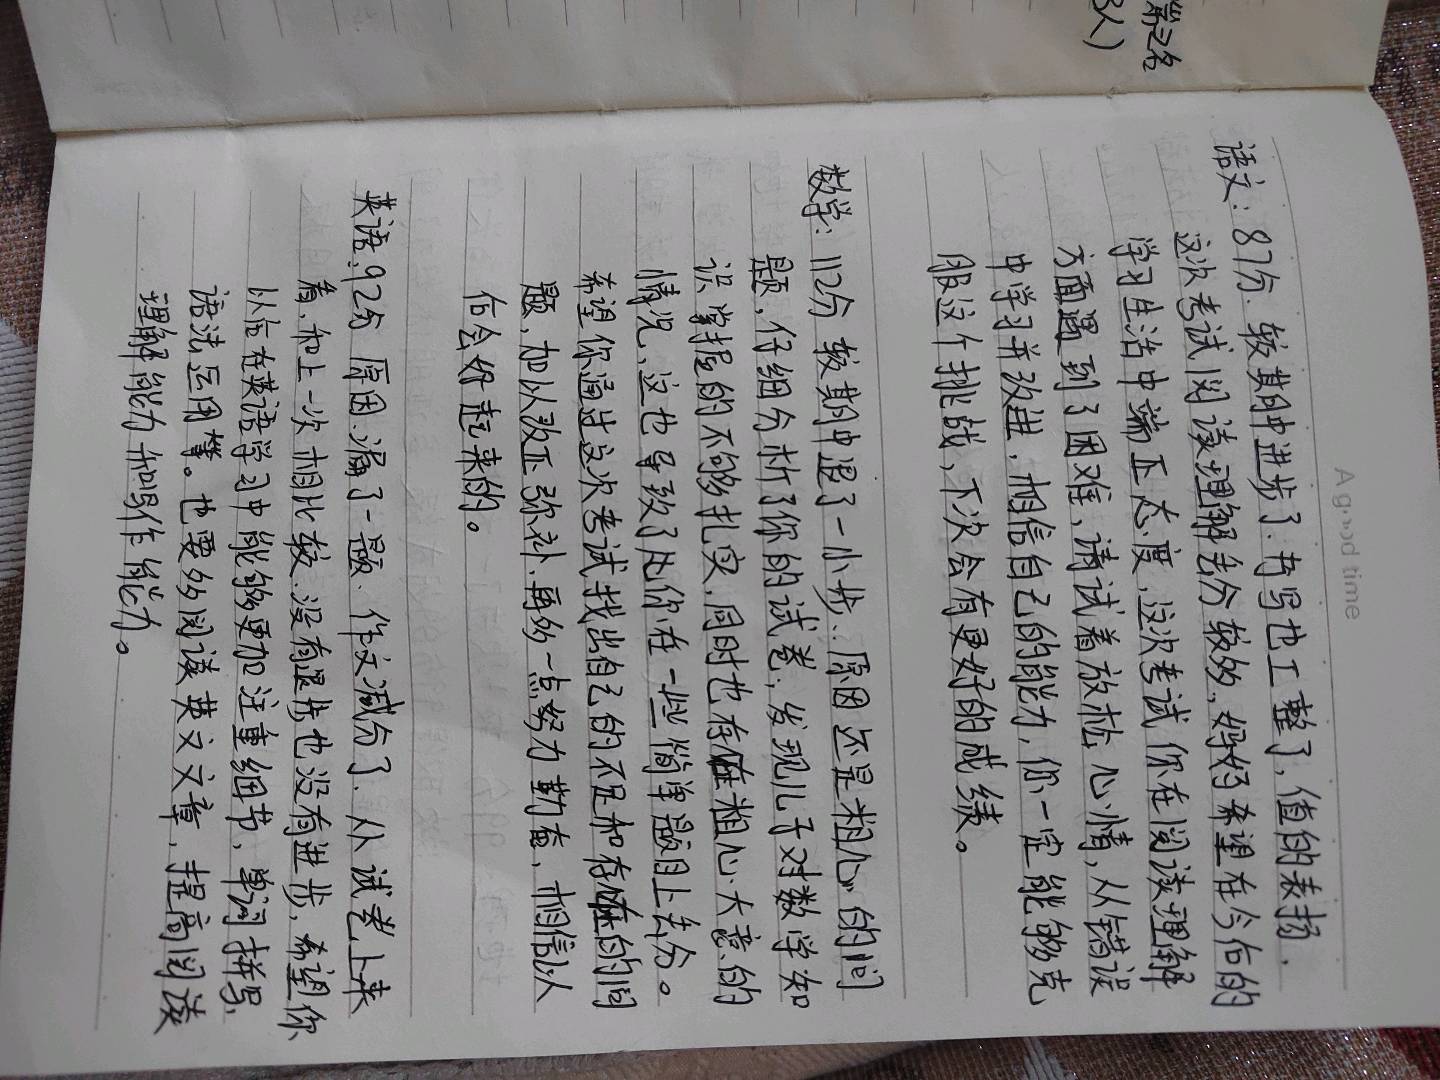 第2名
3人)
A good time
语文: 87分. 较期中进步了. 书写也工整了, 值的表扬.
这次考试阅读理解丢分较多, 妈妈希望在今后的
学习生活中端正态度, 这次考试你在阅读理解
方面遇到了困难, 请试着放松心情, 从错误
中学习并改进, 相信自己的能力, 你一定能够克
服这个挑战, 下次会有更好的成绩。
数学: 112分 较期中退了一小步. 原因还是粗心的问
题, 仔细分析了你的试卷, 发现儿子对数学知
识掌握的不够扎实, 同时也存在粗心大意的
情况, 这也导致了比你在一些简单题目上丢分。
希望你通过这次考试找出自己的不足和存在的问
题, 加以改正弥补. 再多一点努力勤奋, 相信以
后会好起来的。
英语: 92分 原因.漏了一题. 作文减分了. 从试卷上来
看, 和上一次相比较. 没有退步也没有进步, 希望你
以后在英语学习中能够更加注重细节, 单词拼写,
语法运用等。也要多阅读英文文章, 提高阅读
理解能力和写作能力。